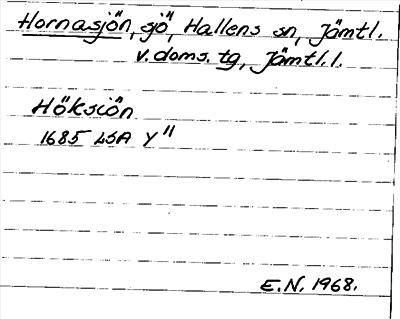 Hornasjön, sjö, Hallens sn, Jämtl.
v. doms. tg, Jämtl. l.
Höksiön
1685 LSA Y"
E.N. 1968.